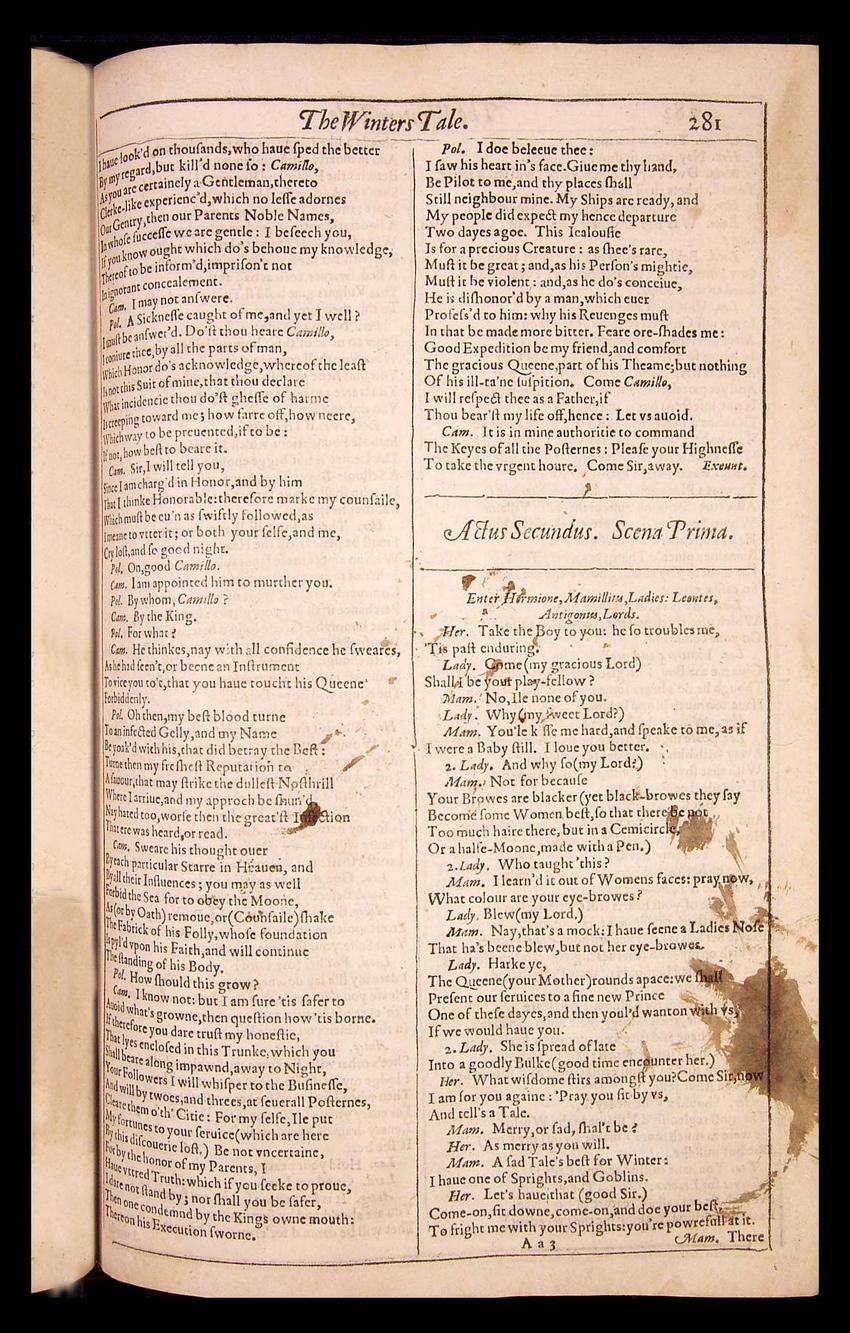 The Winters Tale. 281
I haue look'd on thousands, who haue sped the better
By my regard, but kill'd none so: Camillo,
As you are certainely a Gentleman, thereto
Clerke-like experienc'd, which no lesse adornes
Our Gentry, then our Parents Noble Names,
In whose successe we are gentle: I beseech you,
If you know ought which do's behoue my knowledge,
Thereof to be inform'd, imprison't not
In ignorant concealement.
Cam. I may not answere.
Pol. A Sicknesse caught of me, and yet I well?
I must be answer'd. Do'st thou heare Camillo,
I coniure thee, by all the parts of man,
Which Honor do's acknowledge, whereof the least
Is not this Suit of mine, that thou declare
What incidencie thou do'st ghesse of harme
Is creeping toward me; how farre off, how neere,
Which way to be preuented, if to be:
If not, how best to beare it.
Cam. Sir, I will tell you,
Since I am charg'd in Honor, and by him
That I thinke Honorable: therefore marke my counsaile,
Which must be eu'n as swiftly followed, as
I meane to vtter it; or both your selfe, and me,
Cry lost, and so good night.
Pol. On, good Camillo.
Cam. I am appointed him to murther you.
Pol. By whom, Camillo?
Cam. By the King.
Pol. For what?
Cam. He thinkes, nay with all confidence he sweares,
As he had seen't, or beene an Instrument
To vice you to't, that you haue toucht his Queene
Forbiddenly.
Pol. Oh then, my best blood turne
To an infected Gelly, and my Name
Be yoak'd with his, that did betray the Best:
Turne then my freshest Reputation to
A sauour, that may strike the dullest Nosthrill
Where I arriue, and my approch be shun'd,
Nay hated too, worse then the great'st Infection
That ere was heard, or read.
Cam. Sweare his thought ouer
By each particular Starre in Heauen, and
By all their Influences; you may as well
Forbid the Sea for to obey the Moone,
As (or by Oath) remoue, or (Counsaile) shake
The Fabrick of his Folly, whose foundation
Is pyl'd vpon his Faith, and will continue
The standing of his Body.
Pol. How should this grow?
Cam. I know not: but I am sure 'tis safer to
Auoid what's growne, then question how 'tis borne.
If therefore you dare trust my honestie,
That lyes enclosed in this Trunke, which you
Shall beare along impawnd, away to Night,
Your Followers I will whisper to the Businesse,
And will by twoes, and threes, at seuerall Posternes,
Cleare them o'th' Citie: For my selfe, Ile put
My fortunes to your seruice (which are here
By this discouerie lost.) Be not vncertaine,
For by the honor of my Parents, I
Haue vttred Truth: which if you seeke to proue,
I dare not stand by; nor shall you be safer,
Then one condemnd by the Kings owne mouth:
Thereon his Execution sworne.
Pol. I doe beleeue thee:
I saw his heart in's face. Giue me thy hand,
Be Pilot to me, and thy places shall
Still neighbour mine. My Ships are ready, and
My people did expect my hence departure
Two dayes agoe. This Iealousie
Is for a precious Creature: as shee's rare,
Must it be great; and, as his Person's mightie,
Must it be violent: and, as he do's conceiue,
He is dishonor'd by a man, which euer
Profess'd to him: why his Reuenges must
In that be made more bitter. Feare ore-shades me:
Good Expedition be my friend, and comfort
The gracious Queene, part of his Theame; but nothing
Of his ill-ta'ne suspition. Come Camillo,
I will respect thee as a Father, if
Thou bear'st my life off, hence: Let vs auoid.
Cam. It is in mine authoritie to command
The Keyes of all the Posternes: Please your Highnesse
To take the vrgent houre. Come Sir, away. Exeunt.
Actus Secundus. Scena Prima.
Enter Hermione, Mamillius, Ladies: Leontes,
Antigonus, Lords.
Her. Take the Boy to you: he so troubles me,
'Tis past enduring.
Lady. Come (my gracious Lord)
Shall I be your play-fellow?
Mam. No, Ile none of you.
Lady. Why (my sweet Lord?)
Mam. You'le kisse me hard, and speake to me, as if
I were a Baby still. I loue you better.
2. Lady. And why so (my Lord?)
Mam. Not for because
Your Browes are blacker (yet black-browes they say
Become some Women best, so that there be not
Too much haire there, but in a Cemicircle,
Or a halfe-Moone, made with a Pen.)
2. Lady. Who taught 'this?
Mam. I learn'd it out of Womens faces: pray now,
What colour are your eye-browes?
Lady. Blew (my Lord.)
Mam. Nay, that's a mock: I haue seene a Ladies Nose
That ha's beene blew, but not her eye-browes.
Lady. Harke ye,
The Queene (your Mother) rounds apace: we shall
Present our seruices to a fine new Prince
One of these dayes, and then youl'd wanton with vs,
If we would haue you.
2. Lady. She is spread of late
Into a goodly Bulke (good time encounter her.)
Her. What wisdome stirs amongst you? Come Sir, now
I am for you againe: 'Pray you sit by vs,
And tell's a Tale.
Mam. Merry, or sad, shal't be?
Her. As merry as you will.
Mam. A sad Tale's best for Winter:
I haue one of Sprights, and Goblins.
Her. Let's haue that (good Sir.)
Come-on, sit downe, come-on, and doe your best,
To fright me with your Sprights: you're powrefull at it.
A a 3 Mam. There